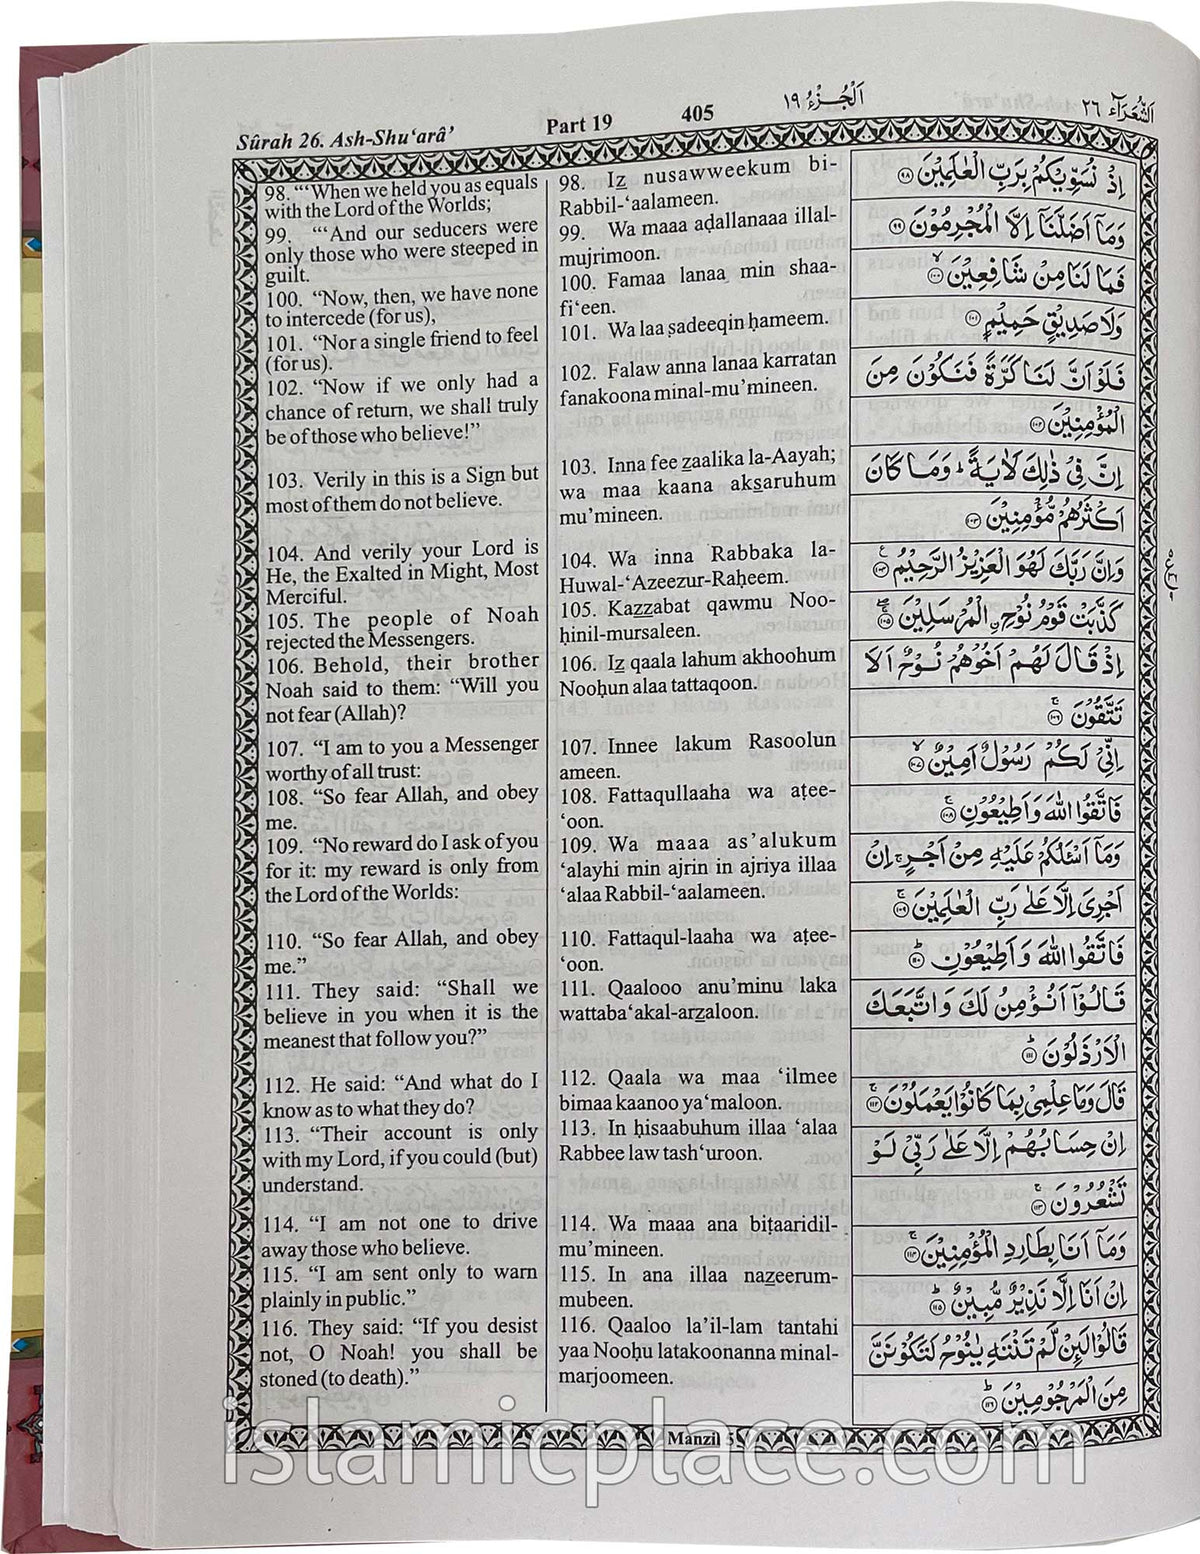 Sûrah 26. Ash-Shu‘arâ’
Part 19
405
اَلْجُزْءُ ١٩
اَلشُّعَرَآءُ ٢٦
98. “‘When we held you as equals
with the Lord of the Worlds;
99. “‘And our seducers were
only those who were steeped in
guilt.
100. “Now, then, we have none
to intercede (for us),
101. “Nor a single friend to feel
(for us).
102. “Now if we only had a
chance of return, we shall truly
be of those who believe!”
103. Verily in this is a Sign but
most of them do not believe.
104. And verily your Lord is
He, the Exalted in Might, Most
Merciful.
105. The people of Noah
rejected the Messengers.
106. Behold, their brother
Noah said to them: “Will you
not fear (Allah)?
107. “I am to you a Messenger
worthy of all trust:
108. “So fear Allah, and obey
me.
109. “No reward do I ask of you
for it: my reward is only from
the Lord of the Worlds:
110. “So fear Allah, and obey
me.”
111. They said: “Shall we
believe in you when it is the
meanest that follow you?”
112. He said: “And what do I
know as to what they do?
113. “Their account is only
with my Lord, if you could (but)
understand.
114. “I am not one to drive
away those who believe.
115. “I am sent only to warn
plainly in public.”
116. They said: “If you desist
not, O Noah! you shall be
stoned (to death).”
98. Iz nusawweekum bi-
Rabbil-‘aalameen.
99. Wa maaa aḍallanaaa illal-
mujrimoon.
100. Famaa lanaa min shaa-
fi‘een.
101. Wa laa ṣadeeqin ḥameem.
102. Falaw anna lanaa karratan
fanakoona minal-mu’mineen.
103. Inna fee zaalika la-Aayah;
wa maa kaana aksaruhum
mu’mineen.
104. Wa inna Rabbaka la-
Huwal-‘Azeezur-Raḥeem.
105. Kazzabat qawmu Noo-
ḥinil-mursaleen.
106. Iz qaala lahum akhoohum
Nooḥun alaa tattaqoon.
107. Innee lakum Rasoolun
ameen.
108. Fattaqullaaha wa aṭee-
‘oon.
109. Wa maaa as’alukum
‘alayhi min ajrin in ajriya illaa
‘alaa Rabbil-‘aalameen.
110. Fattaqul-laaha wa aṭee-
‘oon.
111. Qaalooo anu’minu laka
wattaba‘akal-arzaloon.
112. Qaala wa maa ‘ilmee
bimaa kaanoo ya‘maloon.
113. In ḥisaabuhum illaa ‘alaa
Rabbee law tash‘uroon.
114. Wa maaa ana biṭaaridil-
mu’mineen.
115. In ana illaa nazeerum-
mubeen.
116. Qaaloo la’il-lam tantahi
yaa Nooḥu latakoonanna minal-
marjoomeen.
اِذْ نُسَوِّيْكُمْ بِرَبِّ الْعٰلَمِيْنَ ۹۸
وَمَآ اَضَلَّنَآ اِلَّا الْمُجْرِمُوْنَ ۹۹
فَمَا لَنَا مِنْ شَافِعِيْنَ ۙ ۱۰۰
وَلَا صَدِيْقٍ حَمِيْمٍ ۱۰۱
فَلَوْ اَنَّ لَنَا كَرَّةً فَنَكُوْنَ مِنَ
الْمُؤْمِنِيْنَ ۱۰۲
اِنَّ فِيْ ذٰلِكَ لَاٰيَةً ؕ وَمَا كَانَ
اَكْثَرُهُمْ مُّؤْمِنِيْنَ ۱۰۳
وَاِنَّ رَبَّكَ لَهُوَ الْعَزِيْزُ الرَّحِيْمُ ۱۰۴
كَذَّبَتْ قَوْمُ نُوْحِ ِۨالْمُرْسَلِيْنَ ۱۰۵
اِذْ قَالَ لَهُمْ اَخُوْهُمْ نُوْحٌ اَلَا
تَتَّقُوْنَ ۚ ۱۰۶
اِنِّيْ لَكُمْ رَسُوْلٌ اَمِيْنٌ ۙ ۱۰۷
فَاتَّقُوا اللّٰهَ وَاَطِيْعُوْنِ ۚ ۱۰۸
وَمَآ اَسْـَٔلُكُمْ عَلَيْهِ مِنْ اَجْرٍ ۚ اِنْ
اَجْرِيَ اِلَّا عَلٰى رَبِّ الْعٰلَمِيْنَ ۚ ۱۰۹
فَاتَّقُوا اللّٰهَ وَاَطِيْعُوْنِ ؕ ۱۱۰
قَالُوْٓا اَنُؤْمِنُ لَكَ وَاتَّبَعَكَ
الْاَرْذَلُوْنَ ؕ ۱۱۱
قَالَ وَمَا عِلْمِيْ بِمَا كَانُوْا يَعْمَلُوْنَ ۚ ۱۱۲
اِنْ حِسَابُهُمْ اِلَّا عَلٰى رَبِّيْ لَوْ
تَشْعُرُوْنَ ۚ ۱۱۳
وَمَآ اَنَا بِطَارِدِ الْمُؤْمِنِيْنَ ۚ ۱۱۴
اِنْ اَنَا اِلَّا نَذِيْرٌ مُّبِيْنٌ ؕ ۱۱۵
قَالُوْا لَىِٕنْ لَّمْ تَنْتَهِ يٰنُوْحُ لَتَكُوْنَنَّ
مِنَ الْمَرْجُوْمِيْنَ ؕ ۱۱۶
Manzil 5
islamicplace.com